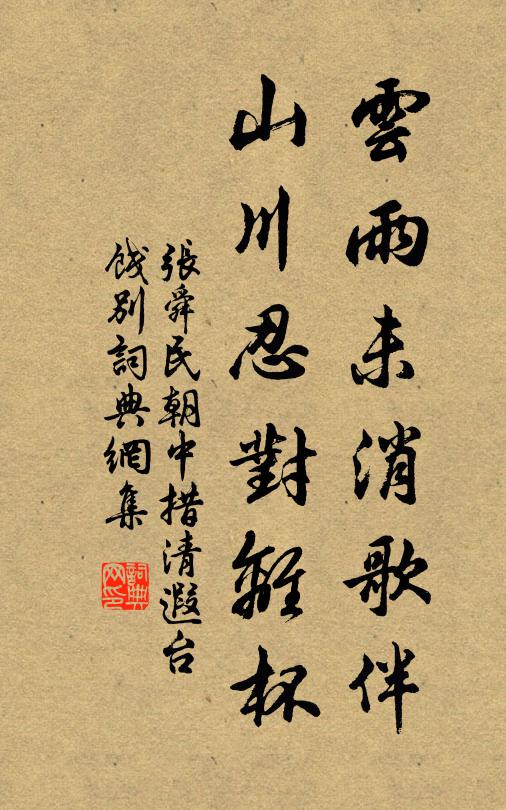 雲雨未消歌伴
山川忍對離杯
張舜民朝中措清遐台
餞別詞典網集
詞典网印